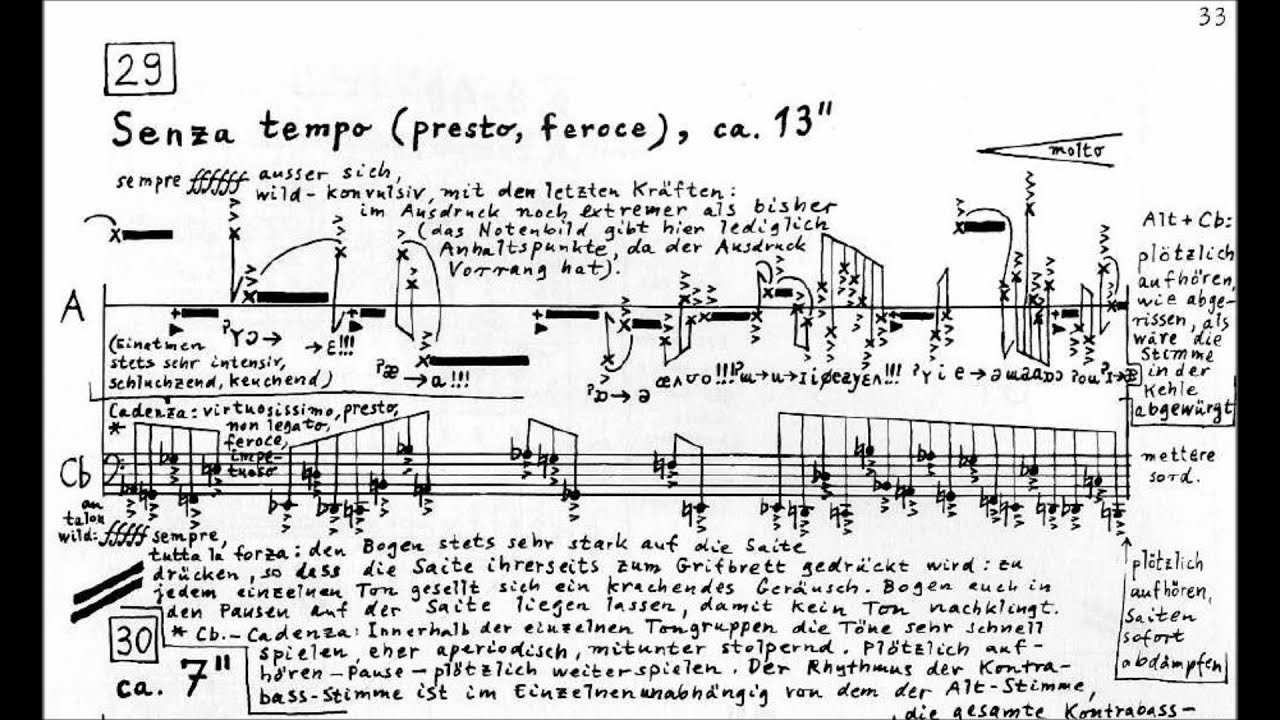 33
29
Senza tempo (presto, feroce), ca. 13"
molto
sempre ffffff ausser sich,
wild-konvulsiv, mit den letzten Kräften:
im Ausdruck noch extremer als bisher
(das Notenbild gibt hier lediglich
Anhaltspunkte, da der Ausdruck
Vorrang hat).
Alt + Cb:
plötzlich
aufhören,
wie abge-
rissen, als
wäre die
Stimme
in der
Kehle
abgewürgt
A
(Einatmen
stets sehr intensiv,
schluchzend, keuchend)
ʔɤɔ→ →ɛ!!!
ʔæ→a!!!
ʔɔ→ə
Cadenza: virtuosissimo, presto,
non legato,
feroce,
impe-
tuoso
*
Cb
mettere
sord.
an
talon
wild: fffff sempre,
tutta la forza: den Bogen stets sehr stark auf die Saite
drücken, so dass die Saite ihrerseits zum Grifbrett gedrückt wird: zu
jedem einzelnen Ton gesellt sich ein krachendes Geräusch. Bogen auch in
den Pausen auf der Saite liegen lassen, damit kein Ton nachklingt.
plötzlich
aufhören,
Saiten
sofort
abdämpfen
* Cb.-Cadenza: Innerhalb der einzelnen Tongruppen die Töne sehr schnell
spielen, eher aperiodisch, mitunter stolpernd. Plötzlich auf-
hören-Pause-plötzlich weiterspielen. Der Rhythmus der Kontra-
bass-Stimme ist im Einzelnen unabhängig von dem der Alt-Stimme,
die gesamte Kontrabass-
30
ca. 7"